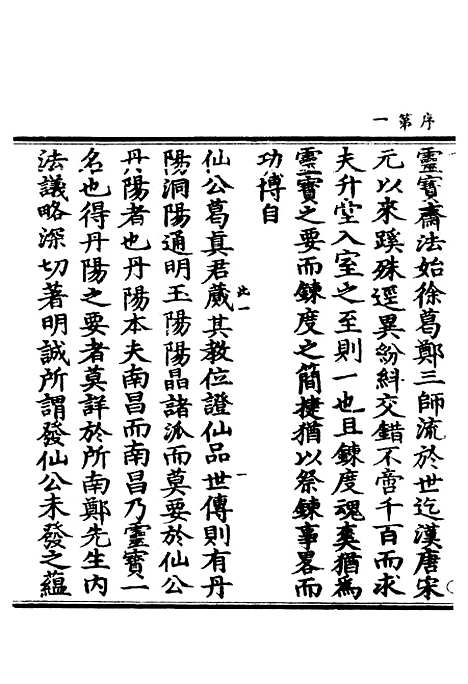 序第一
靈寶齋法始徐葛鄭三師流於世迄漢唐宋
元以來蹊殊逕異紛糾交錯不啻千百而求
夫升堂入室之至則一也且鍊度魂爽猶為
靈寶之要而鍊度之簡捷猶以祭鍊事畧而
功博自
仙公葛真君藏其教位證仙品世傳則有丹
陽洞陽通明玉陽陽晶諸派而莫要於仙公
丹陽者也丹陽本夫南昌而南昌乃靈寶一
名也得丹陽之要者莫詳於所南鄭先生內
法議略深切著明誠所謂發仙公未發之蘊